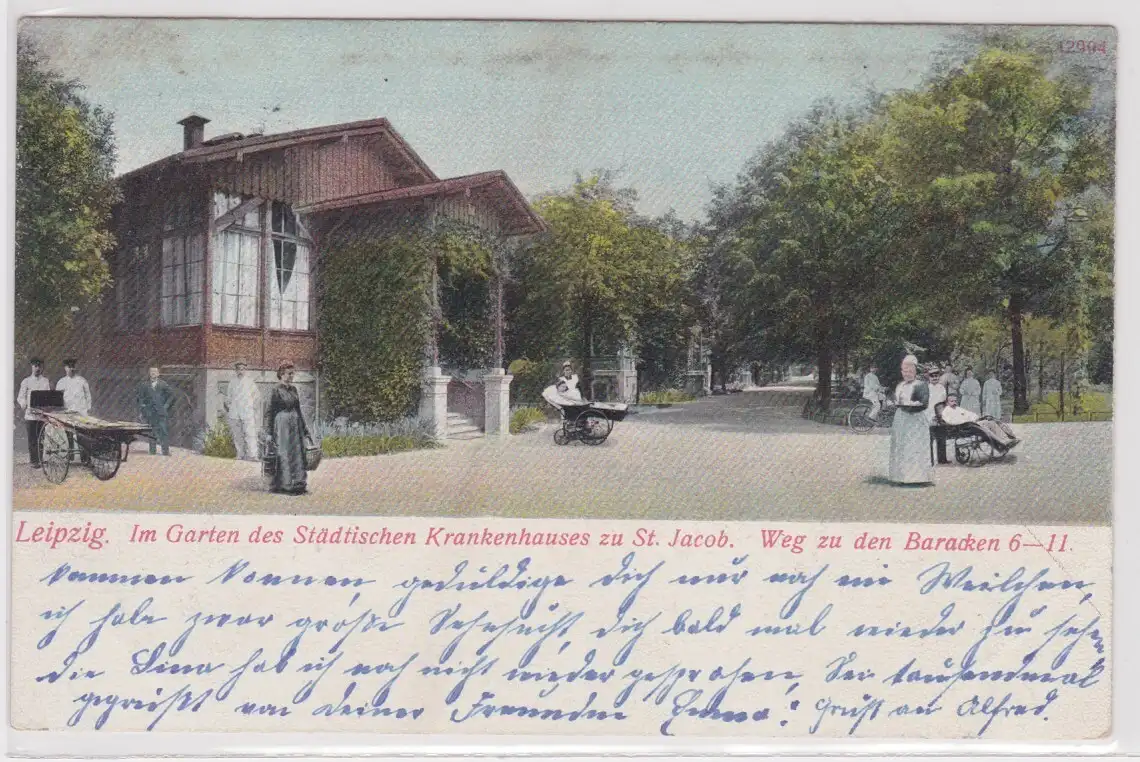 12994
Leipzig. Im Garten des Städtischen Krankenhauses zu St. Jacob. Weg zu den Baracken 6—11.
kommen können, gedüldige dich nur noch ein Weilchen,
ich habe zwar große Sehnsucht, dich bald mal wieder zu sehen,
die Lina hab ich noch nicht wieder gesprochen, Sei tausendmal
gegrüßt von Deiner Freundin Emma! Gruß an Alfred.